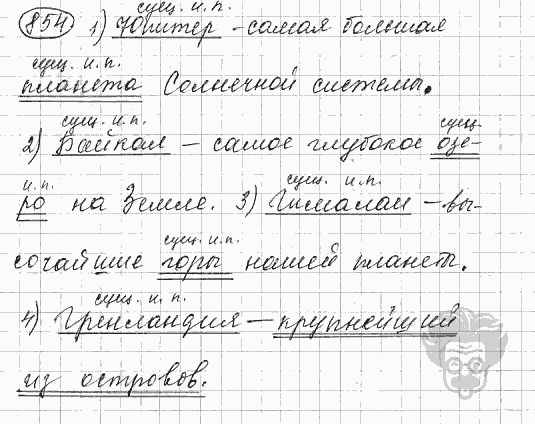 сущ. и.п.
854 1) Юпитер - самая большая
сущ. и.п.
планета Солнечной системы.
сущ. и.п. сущ.
2) Байкал – самое глубокое озе-
и.п. сущ. и.п.
ро на Земле. 3) Гималаи – вы-
сущ. и.п.
сочайшие горы нашей планеты.
сущ. и.п.
4) Гренландия – крупнейший
из островов.